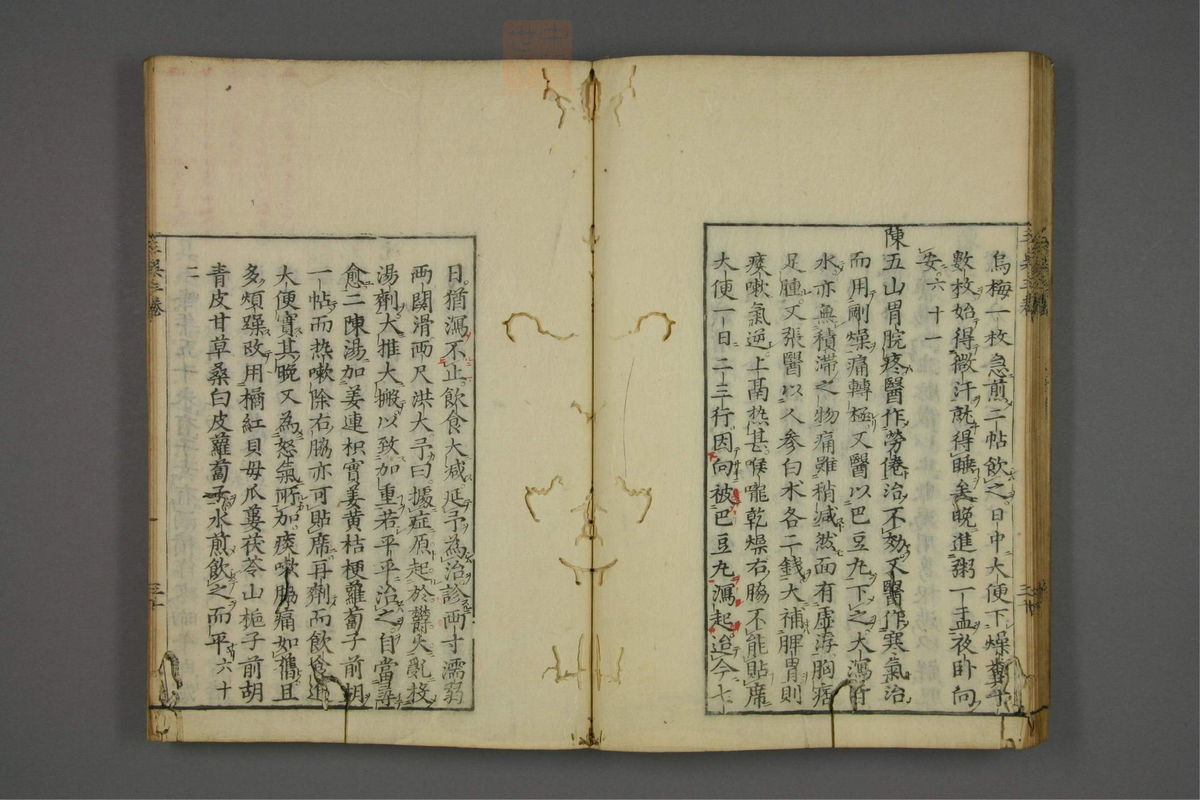 烏梅一枚急煎二帖飲之日中大便下燥糞十
數枚始得微汗就得睡矣晚進粥一盂夜卧向
安六十一
陳五山胃脘疼醫作勞倦治不効又醫作寒氣治
而用剛燥痛轉極又醫以巴豆丸下之大瀉
水亦無積滯之物痛雖稍減然面有虛浮胸痞
足腫又張醫以人參白朮各二錢大補脾胃則
痰嗽氣逆上鬲热甚喉嚨乾燥右脇不能貼席
大便一日二三行因向被巴豆丸瀉起迨今七
日猶瀉不止飲食大減延予為治診兩寸濡弱
兩関滑兩尺洪大予曰據症原起於欝火亂投
湯劑大推大搬以致加重若平平治之自當尋
愈二陳湯加姜連枳實姜黄桔梗蘿蔔子前胡
一帖而热嗽除右脇亦可貼席再劑而飲食進
大便實其晚又為怒氣所加痰嗽脇痛如舊且
多煩躁改用橘紅貝母瓜蔞茯苓山梔子前胡
青皮甘草桑白皮蘿蔔子水煎飲之而平六十
二